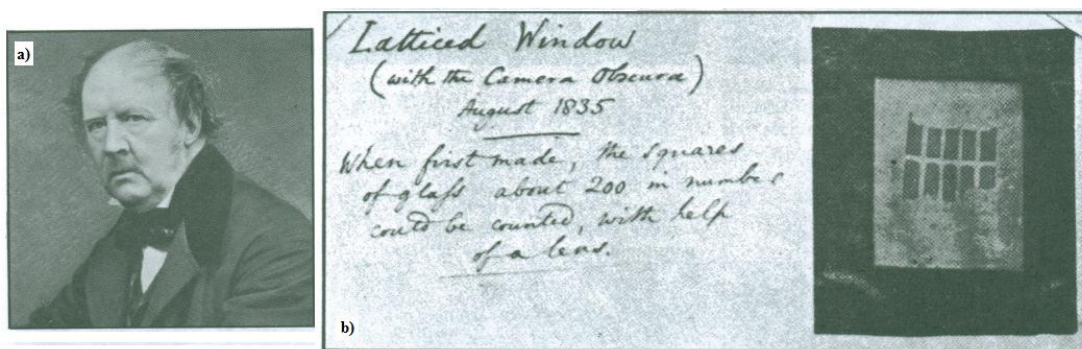 a)
Latticed Window
(with the Camera Obscura)
August 1835
When first made, the squares
of glass about 200 in number
could be counted, with help
of a lens.
b)